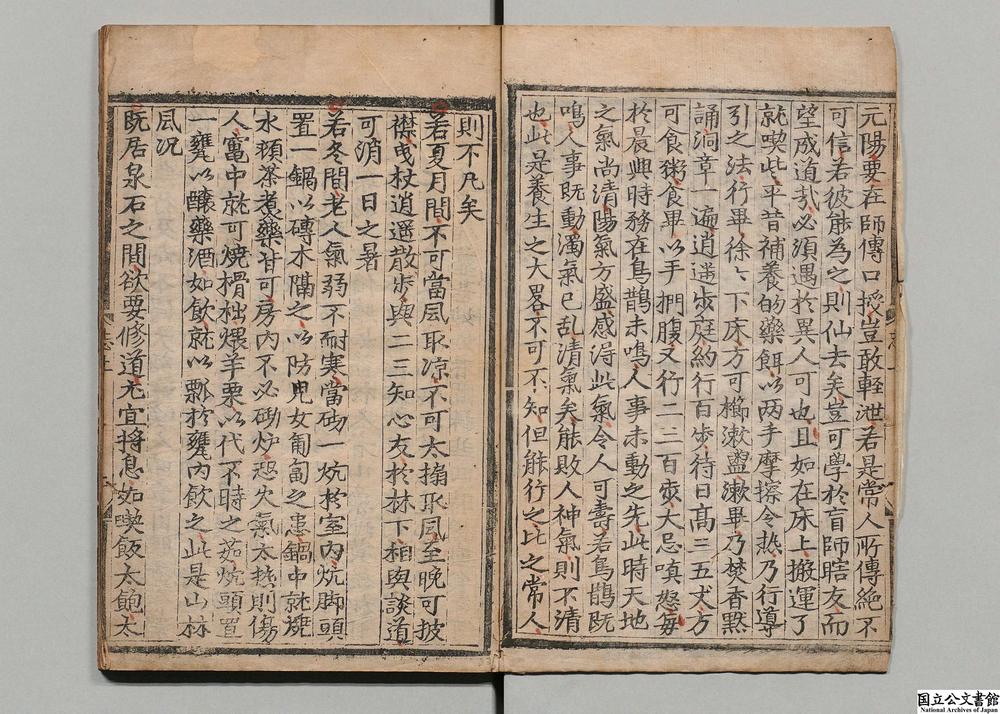 元陽要在師傳口授豈敢輕泄若是常人所傳絶不
可信若彼能為之則仙去矣豈可學於盲師瞎友而
望成道㢤必須遇於異人可也且如在床上搬運了
就喫此平昔補養的藥餌以两手摩擦令热乃行導
引之法行畢徐〻下床方可櫛漱盥漱畢乃焚香黙
誦洞章一遍逍遥步庭約行百步待日高三五丈方
可食粥食畢以手捫腹又行二三百步大忌嗔怒每
於晨興時務在鳥鵲未鳴人事未動之先此時天地
之氣尚清陽氣方盛感得此氣令人可壽若鳥鵲既
鳴人事既動濁氣已乱清氣矣能敗人神氣則不清
也此是養生之大畧不可不知但能行之比之常人
則不凡矣
若夏月間不可當風取凉不可太搧取風至晚可披
襟曳杖逍遥散步與二三知心友於林下相與談道
可消一日之暑
若冬間老人氣弱不耐寒當砌一炕於室內炕脚頭
置一鍋以磚木隔之以防児女匍匐之患鍋中就燒
水頮茶煮藥甘可房內不必砌炉恐火氣太热則傷
人竃中就可燒榾柮煨羊栗以代不時之茹炕頭置
一甕以釀藥酒如飲就以瓢扵甕內飲之此是山林
風況
既居泉石之間欲要修道尤宜將息如喫飯太飽太
国立公文書館
National Archives of Japan